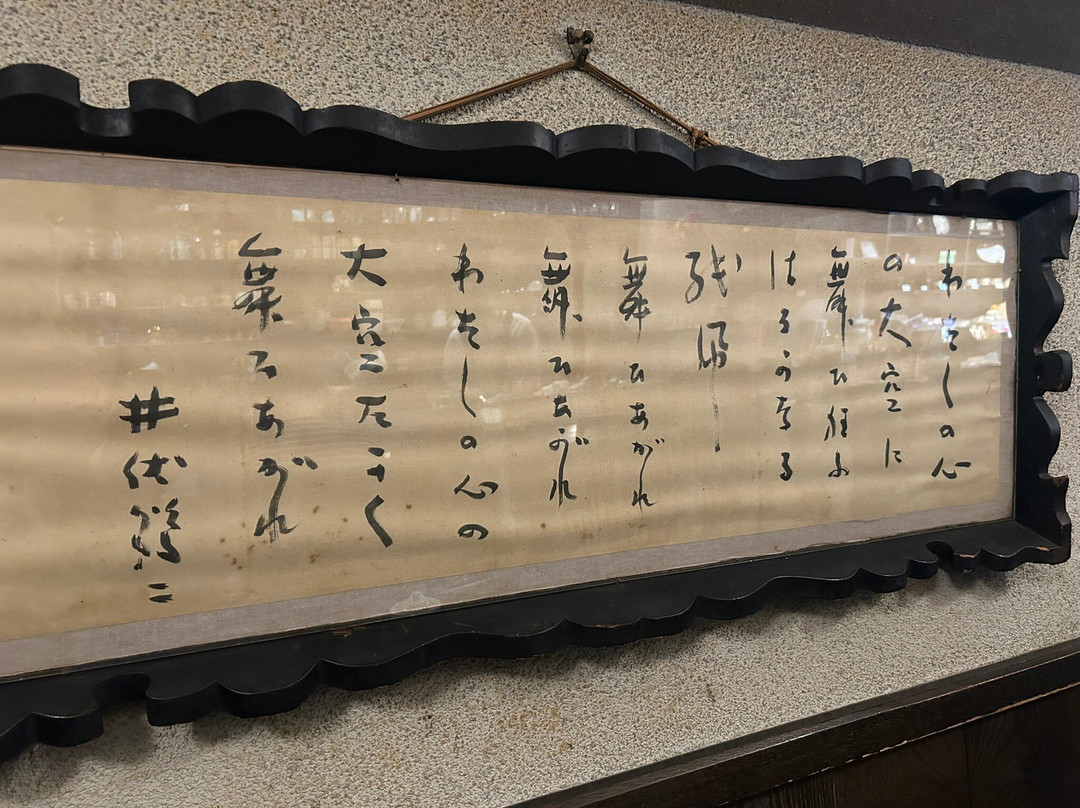 わたしの心
の大空に
舞ひ狂ふ
はるかなる
紙凧
舞ひあがれ
舞ひあがれ
わたしの心の
大空たかく
舞ひあがれ
井伏鱒二